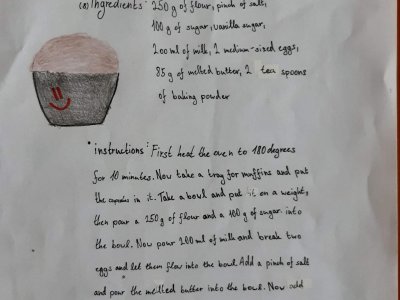 (a) Ingredients: 250 g of flour, pinch of salt,
100 g of sugar, vanilla sugar,
200 ml of milk, 2 medium-sized eggs,
85 g of melted butter, 2 tea spoons
of baking powder
• instructions: First heat the oven to 180 degrees
for 10 minutes. Now take a tray for muffins and put
the capsules in it. Take a bowl and put it on a weight,
then pour a 250 g of flour and a 100 g of sugar into
the bowl. Now pour 200 ml of milk and break two
eggs and let them flow into the bowl. Add a pinch of salt
and pour the melted butter into the bowl. Now add